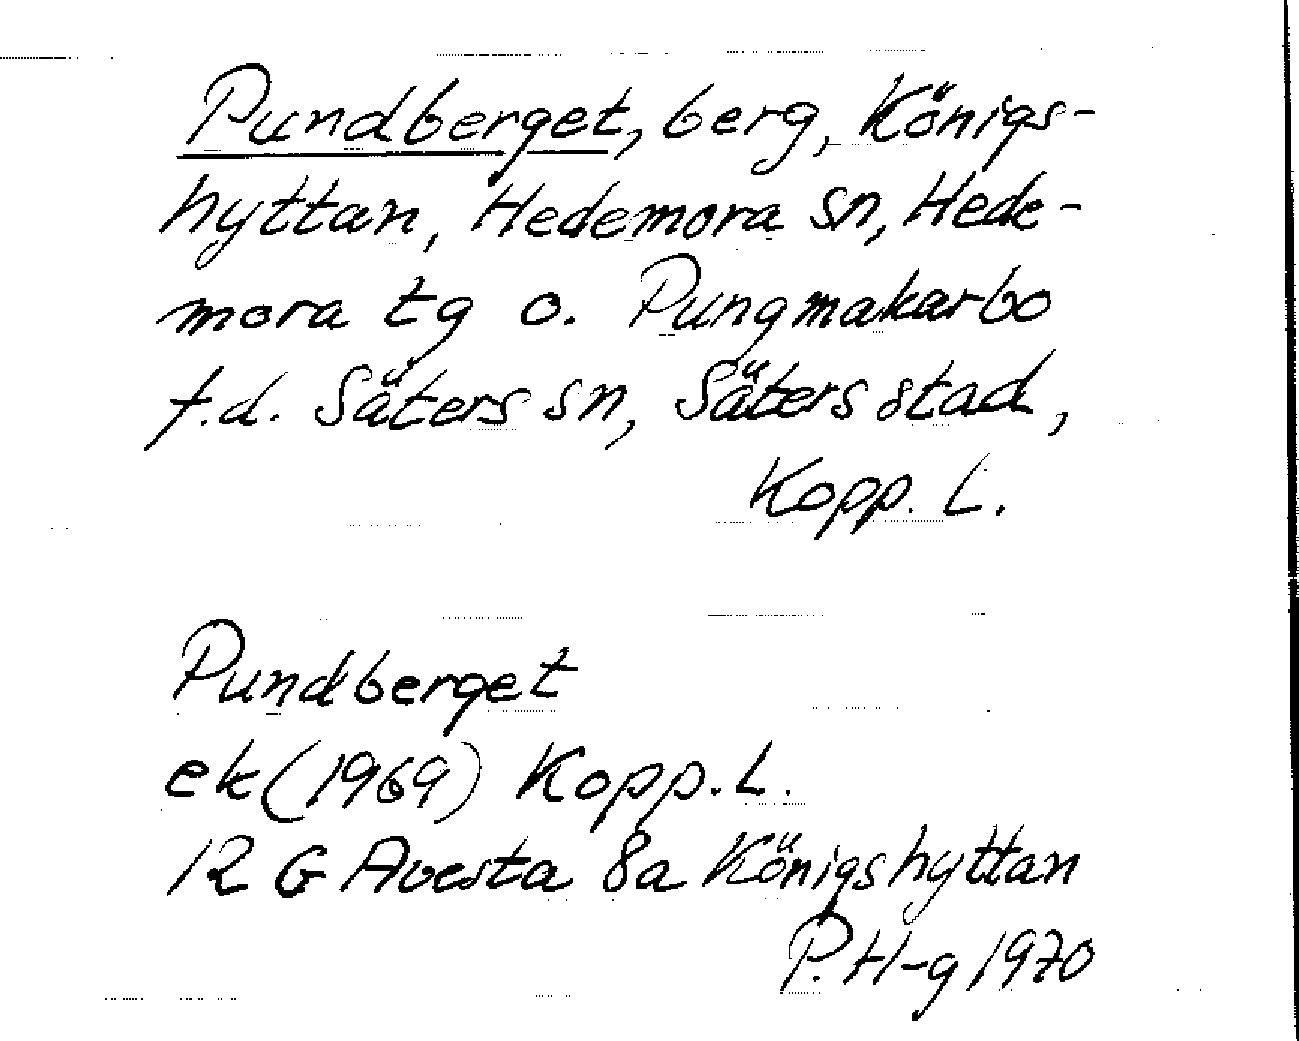 Pundberget, berg, Königs-
hyttan, Hedemora sn, Hede-
mora tg o. Pungmakarbo
f.d. Säters sn, Säters stad,
Kopp. L.
Pundberget
ek (1969) Kopp. L.
12 G Avesta 8a Königshyttan
P. H-g 1970